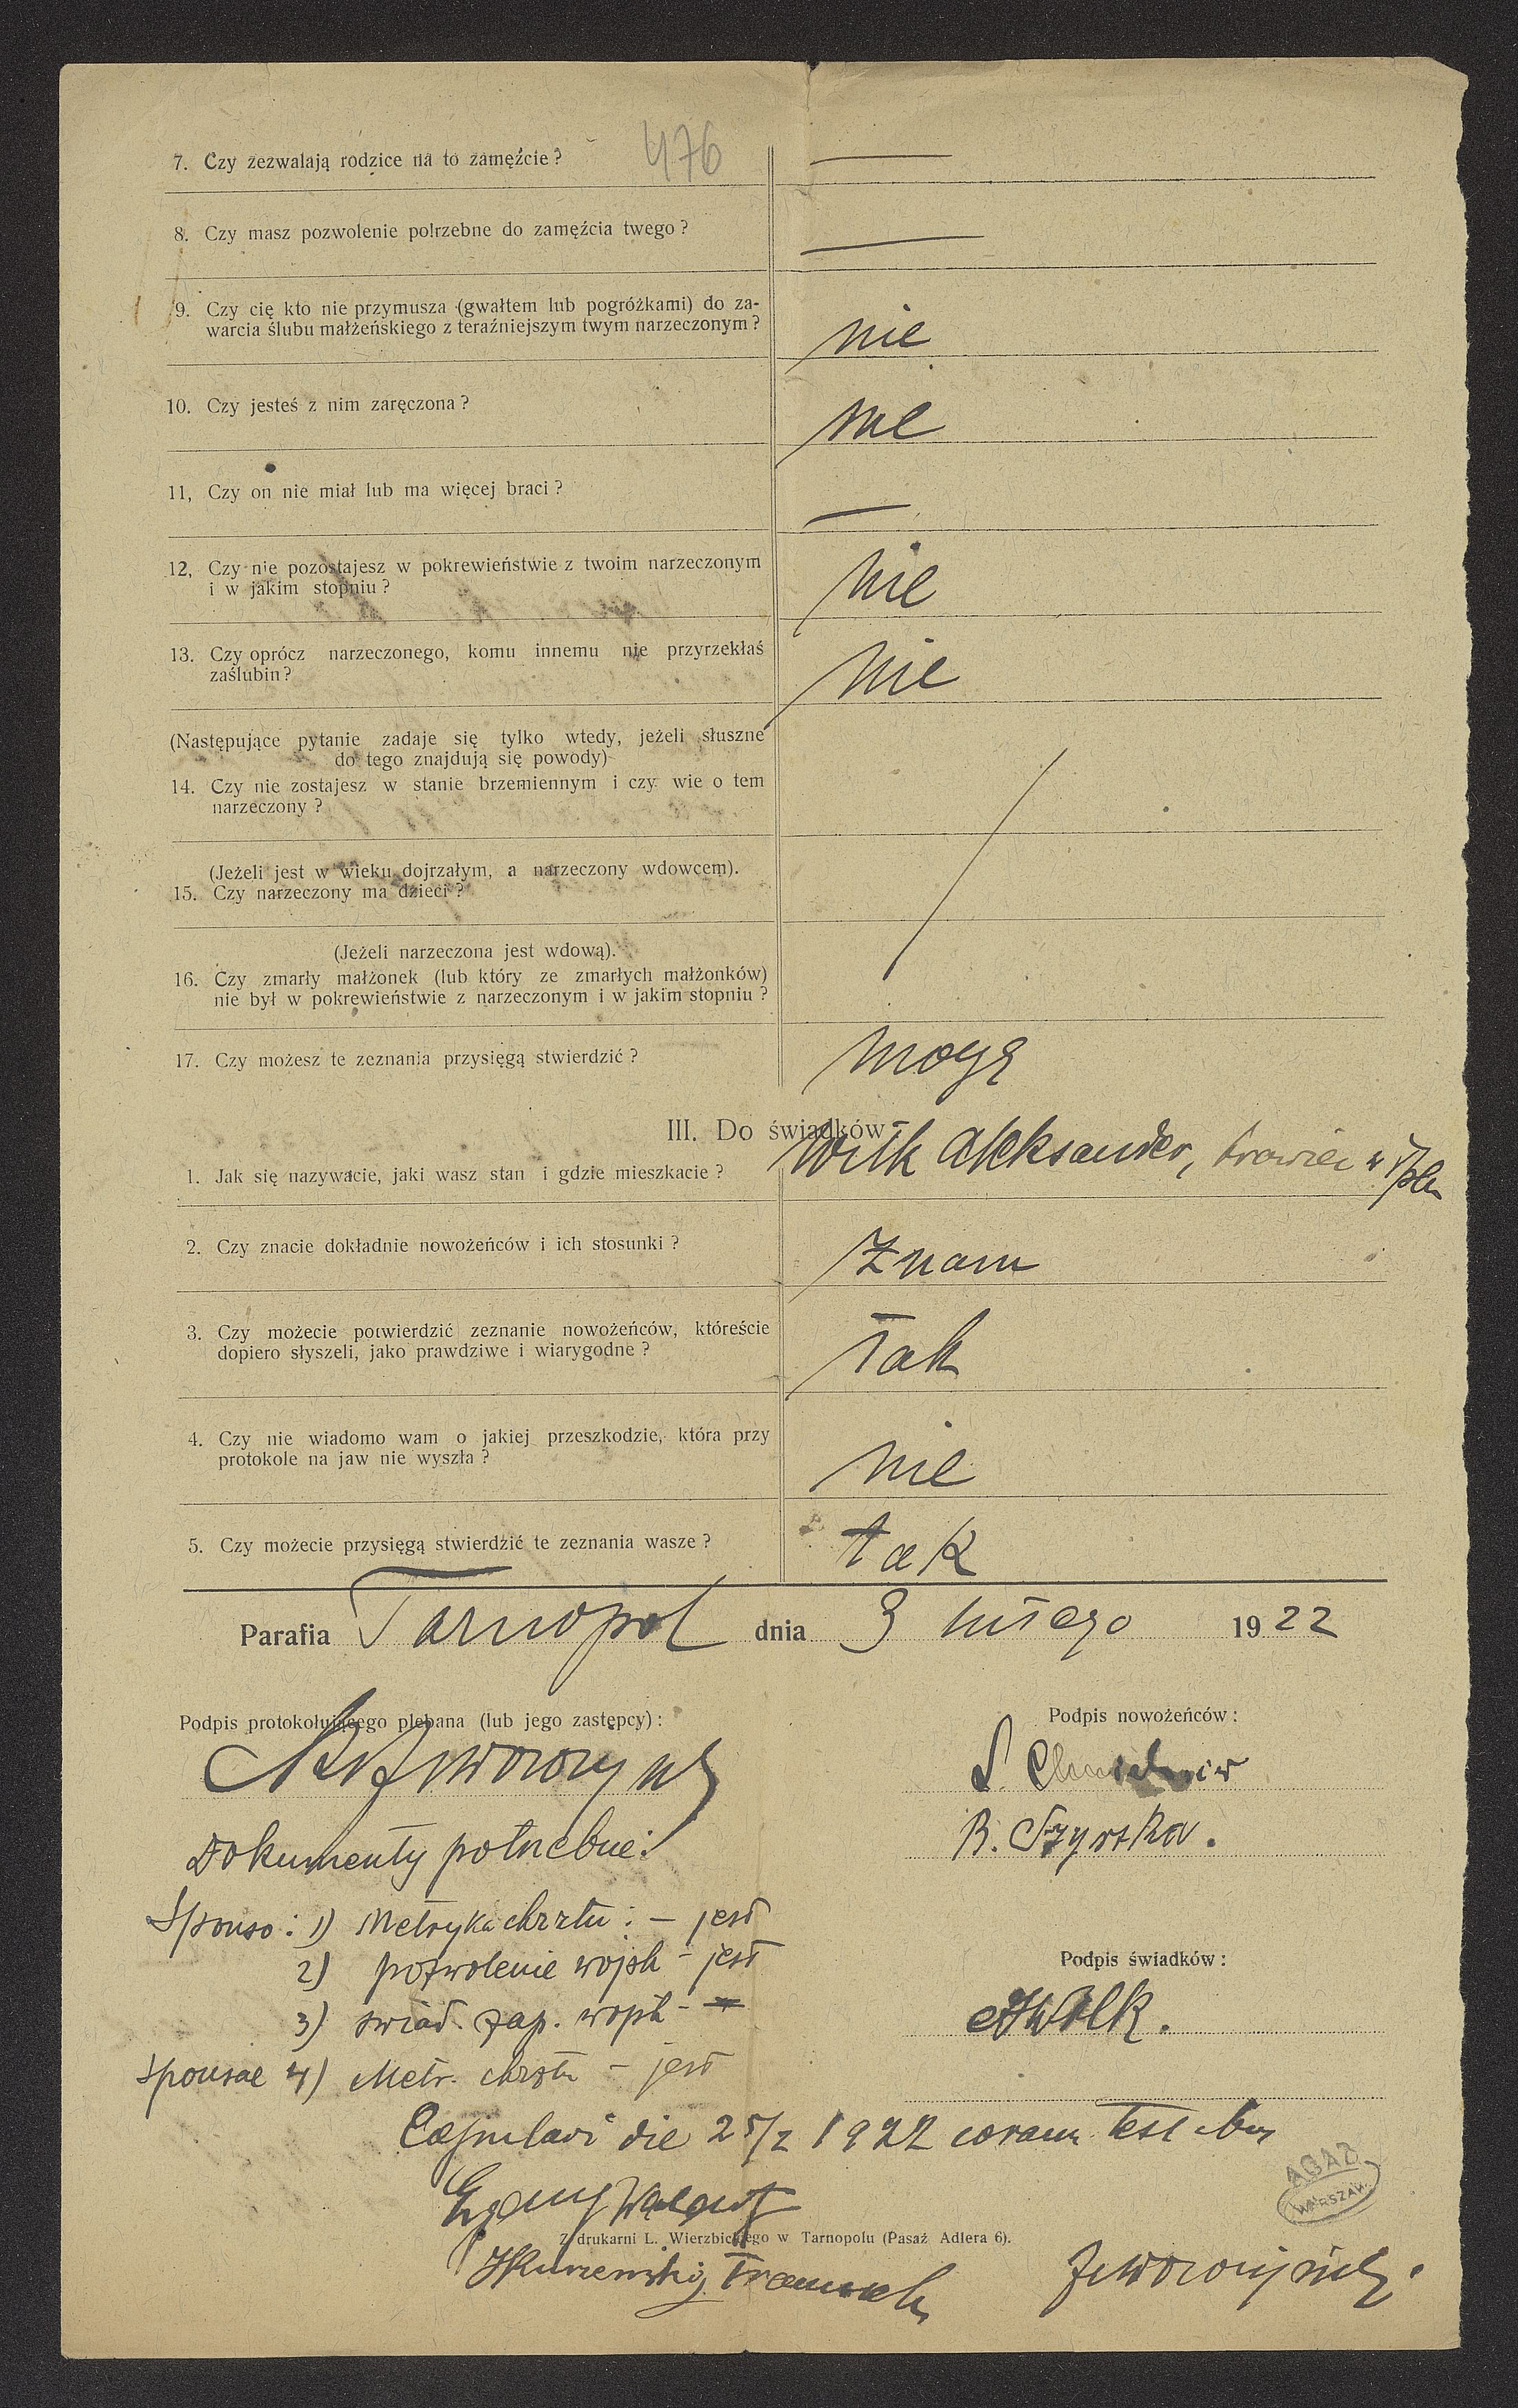 476
7. Czy zezwalają rodzice na to zamęźcie?
8. Czy masz pozwolenie potrzebne do zamęźcia twego?
9. Czy cię kto nie przymusza (gwałtem lub pogróżkami) do za-
warcia ślubu małżeńskiego z teraźniejszym twym narzeczonym?
nie
10. Czy jesteś z nim zaręczona?
nie
11, Czy on nie miał lub ma więcej braci?
12, Czy nie pozostajesz w pokrewieństwie z twoim narzeczonym
i w jakim stopniu?
nie
13. Czy oprócz narzeczonego, komu innemu nie przyrzekłaś
zaślubin?
nie
(Następujące pytanie zadaje się tylko wtedy, jeżeli słuszne
do tego znajdują się powody)
14. Czy nie zostajesz w stanie brzemiennym i czy wie o tem
narzeczony?
(Jeżeli jest w wieku dojrzałym, a narzeczony wdowcem).
15. Czy narzeczony ma dzieci?
(Jeżeli narzeczona jest wdową).
16. Czy zmarły małżonek (lub który ze zmarłych małżonków)
nie był w pokrewieństwie z narzeczonym i w jakim stopniu?
17. Czy możesz te zeznania przysięgą stwierdzić?
mogę
III. Do świadków
1. Jak się nazywacie, jaki wasz stan i gdzie mieszkacie?
Wilk Aleksander, krawiec w
2. Czy znacie dokładnie nowożeńców i ich stosunki?
Znam
3. Czy możecie potwierdzić zeznanie nowożeńców, któreście
dopiero słyszeli, jako prawdziwe i wiarygodne?
Tak
4. Czy nie wiadomo wam o jakiej przeszkodzie, która przy
protokole na jaw nie wyszła?
nie
5. Czy możecie przysięgą stwierdzić te zeznania wasze?
tak
Parafia Tarnopol dnia 3 lutego 1922
Podpis protokołującego plebana (lub jego zastępcy):
Podpis nowożeńców:
B. Szyrska.
Dokumenty potrzebne:
Sponso: 1) Metryka chrztu: – jest
2) pozwolenie wojsk – jest
3) świad. zap. wojsk –
Sponsae 4) Metr. chrztu – jest
Podpis świadków:
AWilk.
Copulavi die 25/2 1922 coram testibus
Z drukarni L. Wierzbickiego w Tarnopolu (Pasaż Adlera 6).
AGAD
WARSZAWA